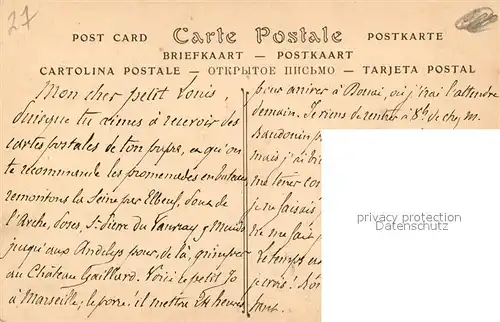 27
POST CARD Carte Postale POSTKARTE
BRIEFKAART — POSTKAART
CARTOLINA POSTALE — ОТКРЫТОЕ ПИСЬМО — TARJETA POSTAL
Mon cher petit Louis,
puisque tu aimes à recevoir des
cartes postales de ton papa, et qu'on
te recommande les promenades en bateau,
remontons la Seine par Elbeuf, Pont de
l'Arche, Poses, St Pierre du Vauvray,
jusqu'aux Andelys pour, de là, grimper
au Château Gaillard. Voici le petit Jo
à Marseille; le pore! il mettra 24 heures
pour arriver à où j'irai l'attendre
demain. Je viens de rentrer à 8h de chez M.
Baudouin
mais j'ai
me tener
je su faisais
ne me fait
le temps
privacy protection
Datenschutz